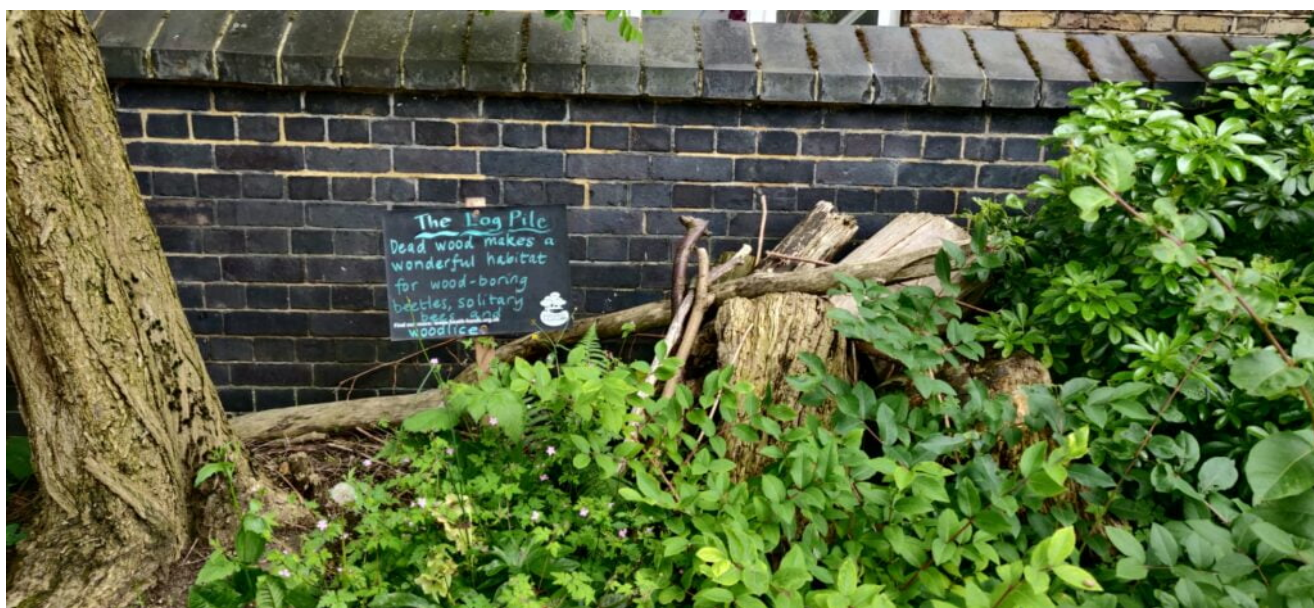 The Log Pile
Dead wood makes a
wonderful habitat
for wood-boring
beetles, solitary
bees, and
woodlice